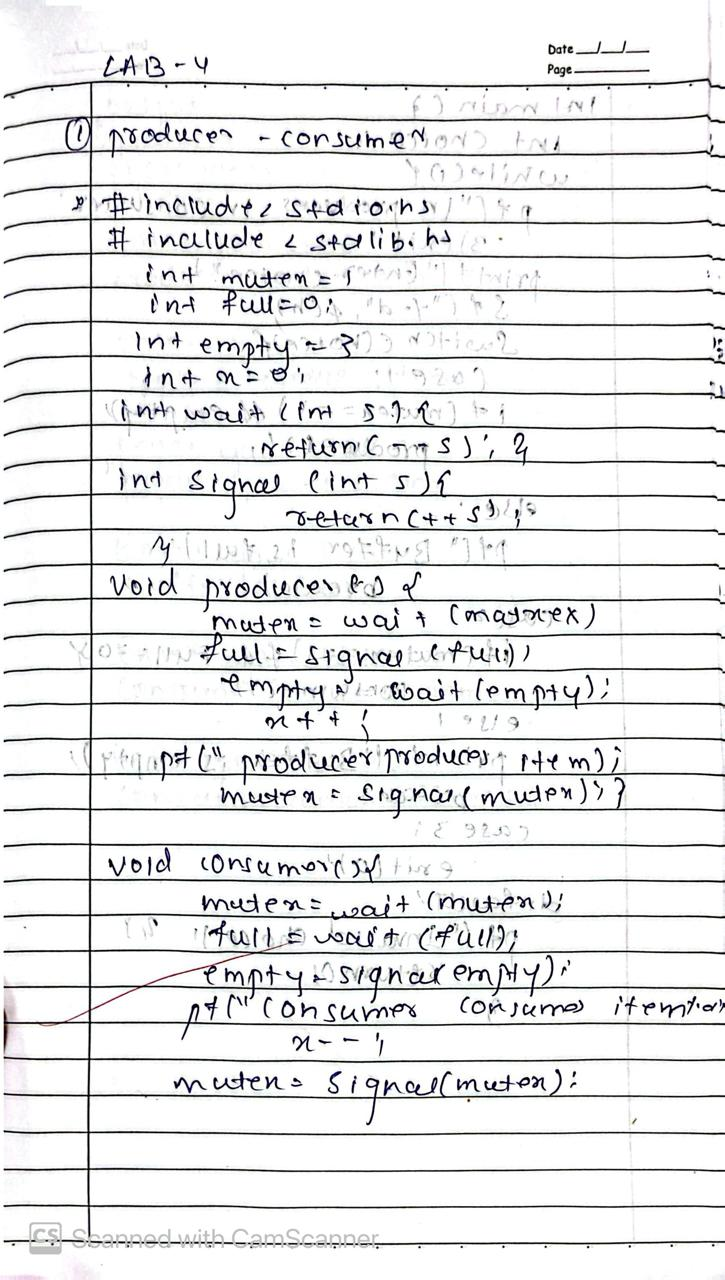 Date __/__/__
LAB - 4
Page
① producer - consumer
# include < stdio.h>
# include < stdlib.h>
int mutex = 1
int full = 0;
int empty = 3
int x = 0;
int wait (int s) {
return (--s); }
int signal (int s) {
return (++s);
}
void producer () {
mutex = wait (mutex)
full = signal (full);
empty = wait (empty);
x++;
pf (" producer produces item);
mutex = signal (mutex); }
void consumer () {
mutex = wait (mutex);
full = wait (full);
empty = signal empty);
pf (" consumer consumes item
x--;
mutex = signal (mutex);
CS Scanned with CamScanner